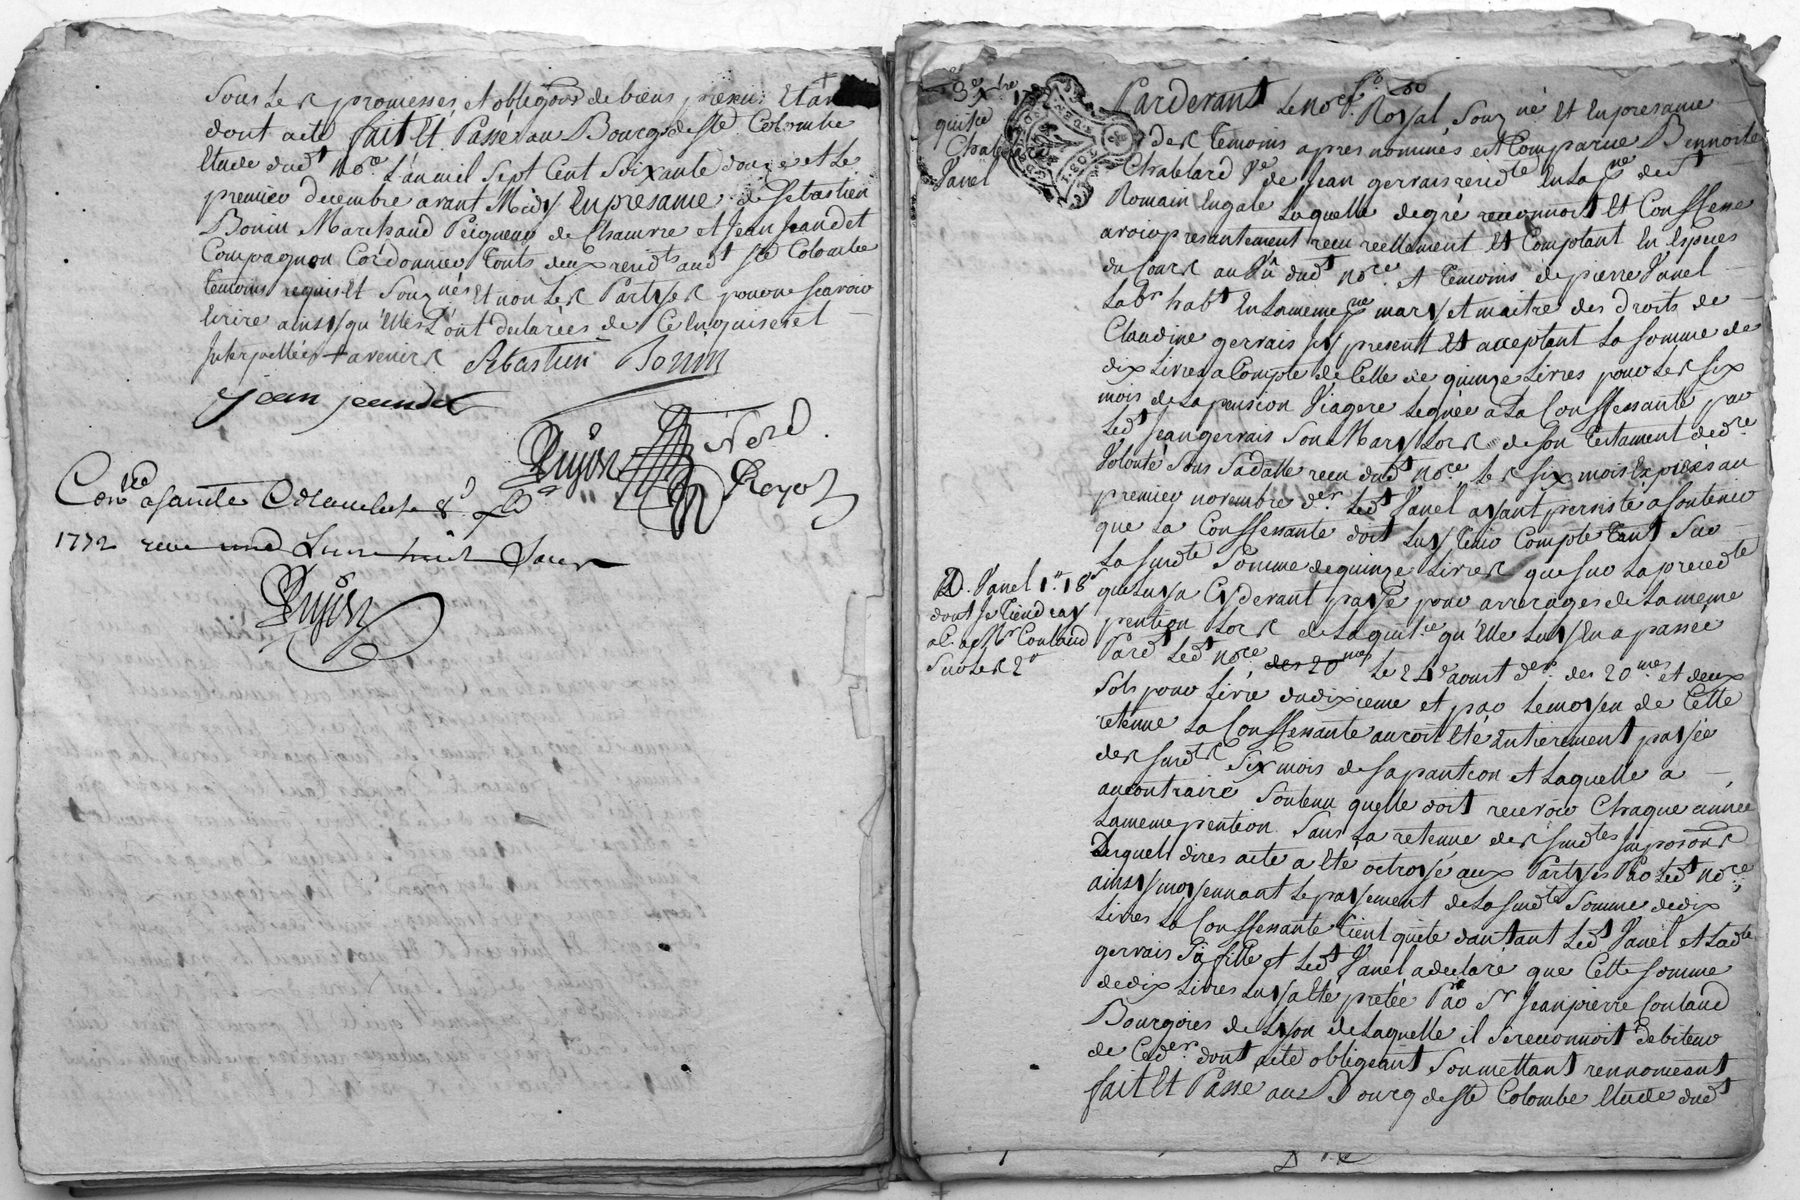 Sous les promesses, et obligõns de biens presens et à
dont acte fait Et Passé au Bourg de Ste Colombe
Etude dudt Nore L'an mil Sept Cent Soixante douze et le
premier decembre avant Midy En presance de Sebastien
Bonin Marchand Peigneur de Chanvre et Jean Jeandet
Compagnon Cordonnier touts deux residts audt Ste Colombe
temoins requis Et Souznés Et non Les Partyes pour ne scavoir
Ecrire ainsy qu'Elles L'ont declarées de Ce Enquises et
Interpellées + avenir Sebastien Bonin
jean jeandet
Pujon
Nore
Royal
Conlé a sainte Colombe le 8e
1772 reçu une Livre huit Sous
Pujon
3e Xbre 17
quitce
Chablard
Janel
Pardevant Le Nore Royal Souzné Et En presance
des temoins apres nommés est Comparue Bennoite
Chablard Ve de Jean gervais residte En La pne de St
Romain Engale Laquelle de gré reconnoit Et Conffesse
avoir presantement recu reellement Et Comptant En Espèces
du Cours au Vû dudt Nore Et temoins de pierre Janel
Labr habt En La meme pne mary et maitre des droits de
Claudine gervais icy present Et acceptant La Somme de
dix Livres a Compte de Celle de quinze Livres pour Les Six
mois de La pension Viagere Leguée a La Conffessante par
Ledt Jean gervais Son Mary Lors de Son testament de dre
Volonté Sous Sa datte recu dudt Nore Les Six mois Expirés au
premier novembre der Ledt Janel ayant persisté a Soutenir
que La Conffessante doit Luy tenir Compte tant Sur
La Susdte Somme de quinze Livres que Sur La precedte
D. Janel 1er 18s
dont Se tiendray
a C. a Mr Couland
Sur Les 2s
que Luy a Cydevant payé pour arrerages de La même
pention Lors de La quitce qu'Elle Luy En a passée
Pardt Ledt Nore des 20mes Le 24e aoust der des 20mes et deux
Sols pour Livre du dixieme et par Le moyen de Cette
retenue La Conffessante auroit Eté Entierement payée
des Susdts Six mois de Sa pantion Et Laquelle a
au contraire Soutenu quelle doit recevoir Chaque année
La meme pention Sans La retenue des Susdtes Impositions
Desquels dires acte a Eté octroyé aux Partyes Par Ledt Nore
ainsy moyennant Le payement de La Susdte Somme de dix
Livres La Conffessante tient quitte d'autant Ledt Janel et Ladte
gervais Sa fille et Ledt Janel a declaré que Cette Somme
de dix Livres Luy a Eté pretée Par Sr Jean pierre Couland
Bourgois de Lyon de Laquelle il Se reconnoit debiteur
de Ce der dont acte obligeant Soumettant rennonceant
fait Et Passé au Bourg de Ste Colombe Etude dudt